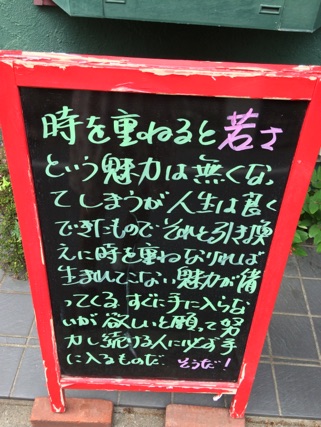 時を重ねると若さ
という魅力は無くなっ
てしまうが人生は良く
できたもので それと引き換
えに時を重ねなければ
生まれてこない魅力が備
ってくる。すぐに手に入らな
いが欲しいと願って努
力し続ける人に必ず手
に入るものだ。そうだ!